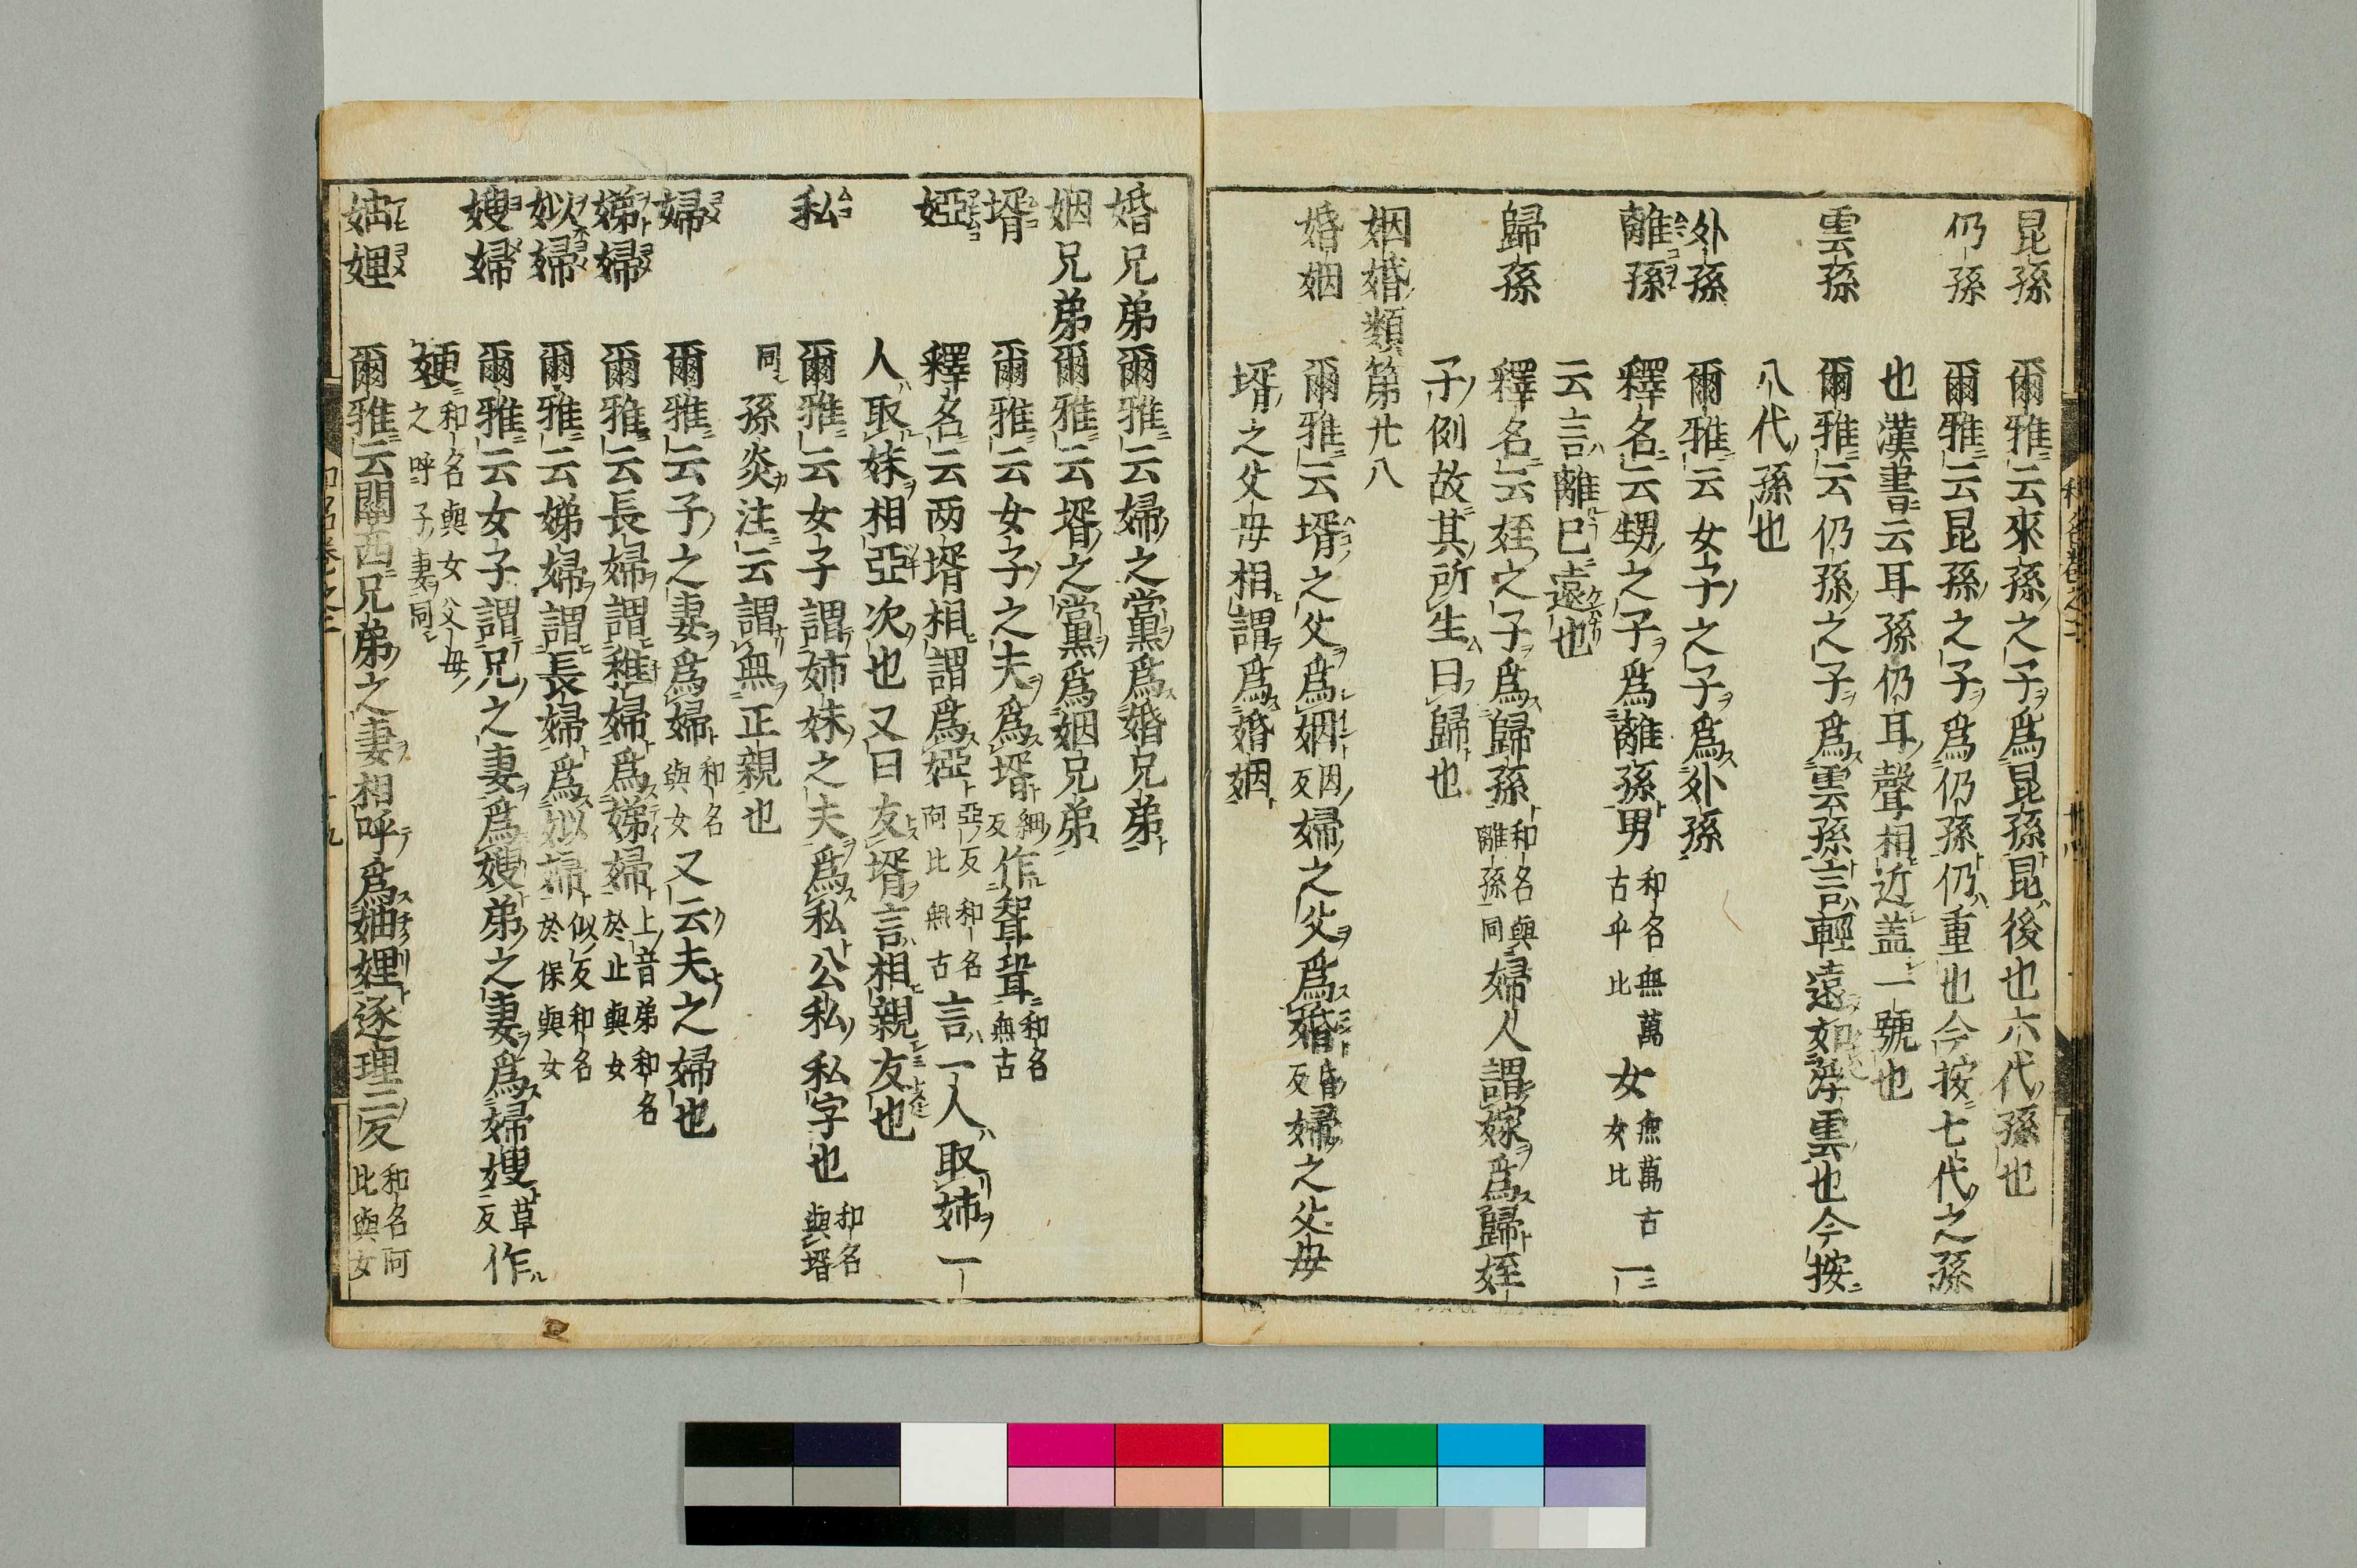 昆孫　爾雅云來孫之子爲昆孫昆後也六代孫也
仍孫　爾雅云昆孫之子爲仍孫仍重也今按七代之孫
也漢書云耳孫仍耳聲相近盖一號也
雲孫　爾雅云仍孫之子爲雲孫言輕遠如浮雲也今按
八代孫也
外孫　爾雅云女子之子爲外孫
離孫　釋名云甥之子爲離孫男和名無萬古乎比女無萬古女比一
云言離已遠也
歸孫　釋名云姪之子爲歸孫和名與離孫同婦人謂嫁爲歸姪
子例故其所生曰歸也
姻婚類第廿八
婚姻　爾雅云壻之父爲姻因反婦之父爲婚昏反婦之父母
壻之父母相謂爲婚姻
婚兄弟　爾雅云婦之黨爲婚兄弟
姻兄弟　爾雅云壻之黨爲姻兄弟
壻　爾雅云女子之夫爲壻細反作聟聟和名無古
婭　釋名云两壻相謂爲婭亞反和名阿比無古言一人取姉一
人取妹相亞次也又曰友壻言相親友也
私　爾雅云女子謂姉妹之夫爲私公私私字也和名與壻
同孫炎注云謂無正親也
婦　爾雅云子之妻爲婦和名與女又云夫之婦也
娣婦　爾雅云長婦謂稚婦爲娣婦上音弟和名於止與女
姒婦　爾雅云娣婦謂長婦爲姒婦似反和名於保與女
嫂婦　爾雅云女子謂兄之妻爲嫂弟之妻爲婦嫂草反作
㛐和名與女父母之呼子妻同
妯娌　爾雅云關西兄弟之妻相呼爲妯娌逐理二反和名阿比與女